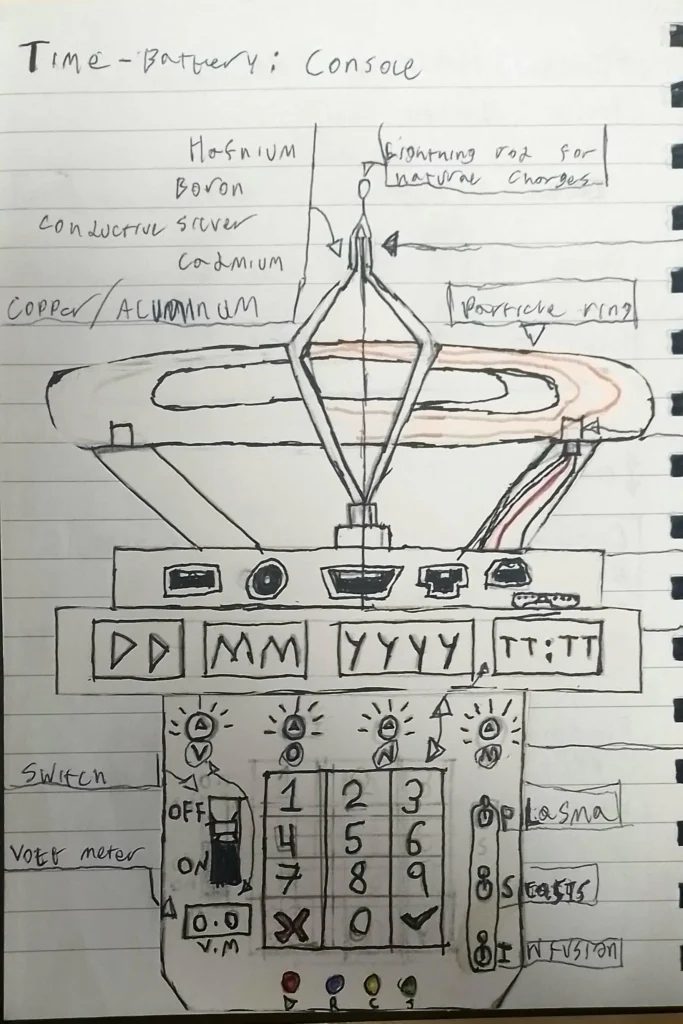 Time-Battery: Console
Hafnium
Boron
Conductive Silver
Cadmium
Copper/Aluminum
Lightning rod for
natural charges
Particle ring
DD MM YYYY TT:TT
V O N M
Switch
OFF
ON
Volt meter
0.0
V.M
1 2 3
4 5 6
7 8 9
X 0 ✓
Plasma
Infusion
D R C J